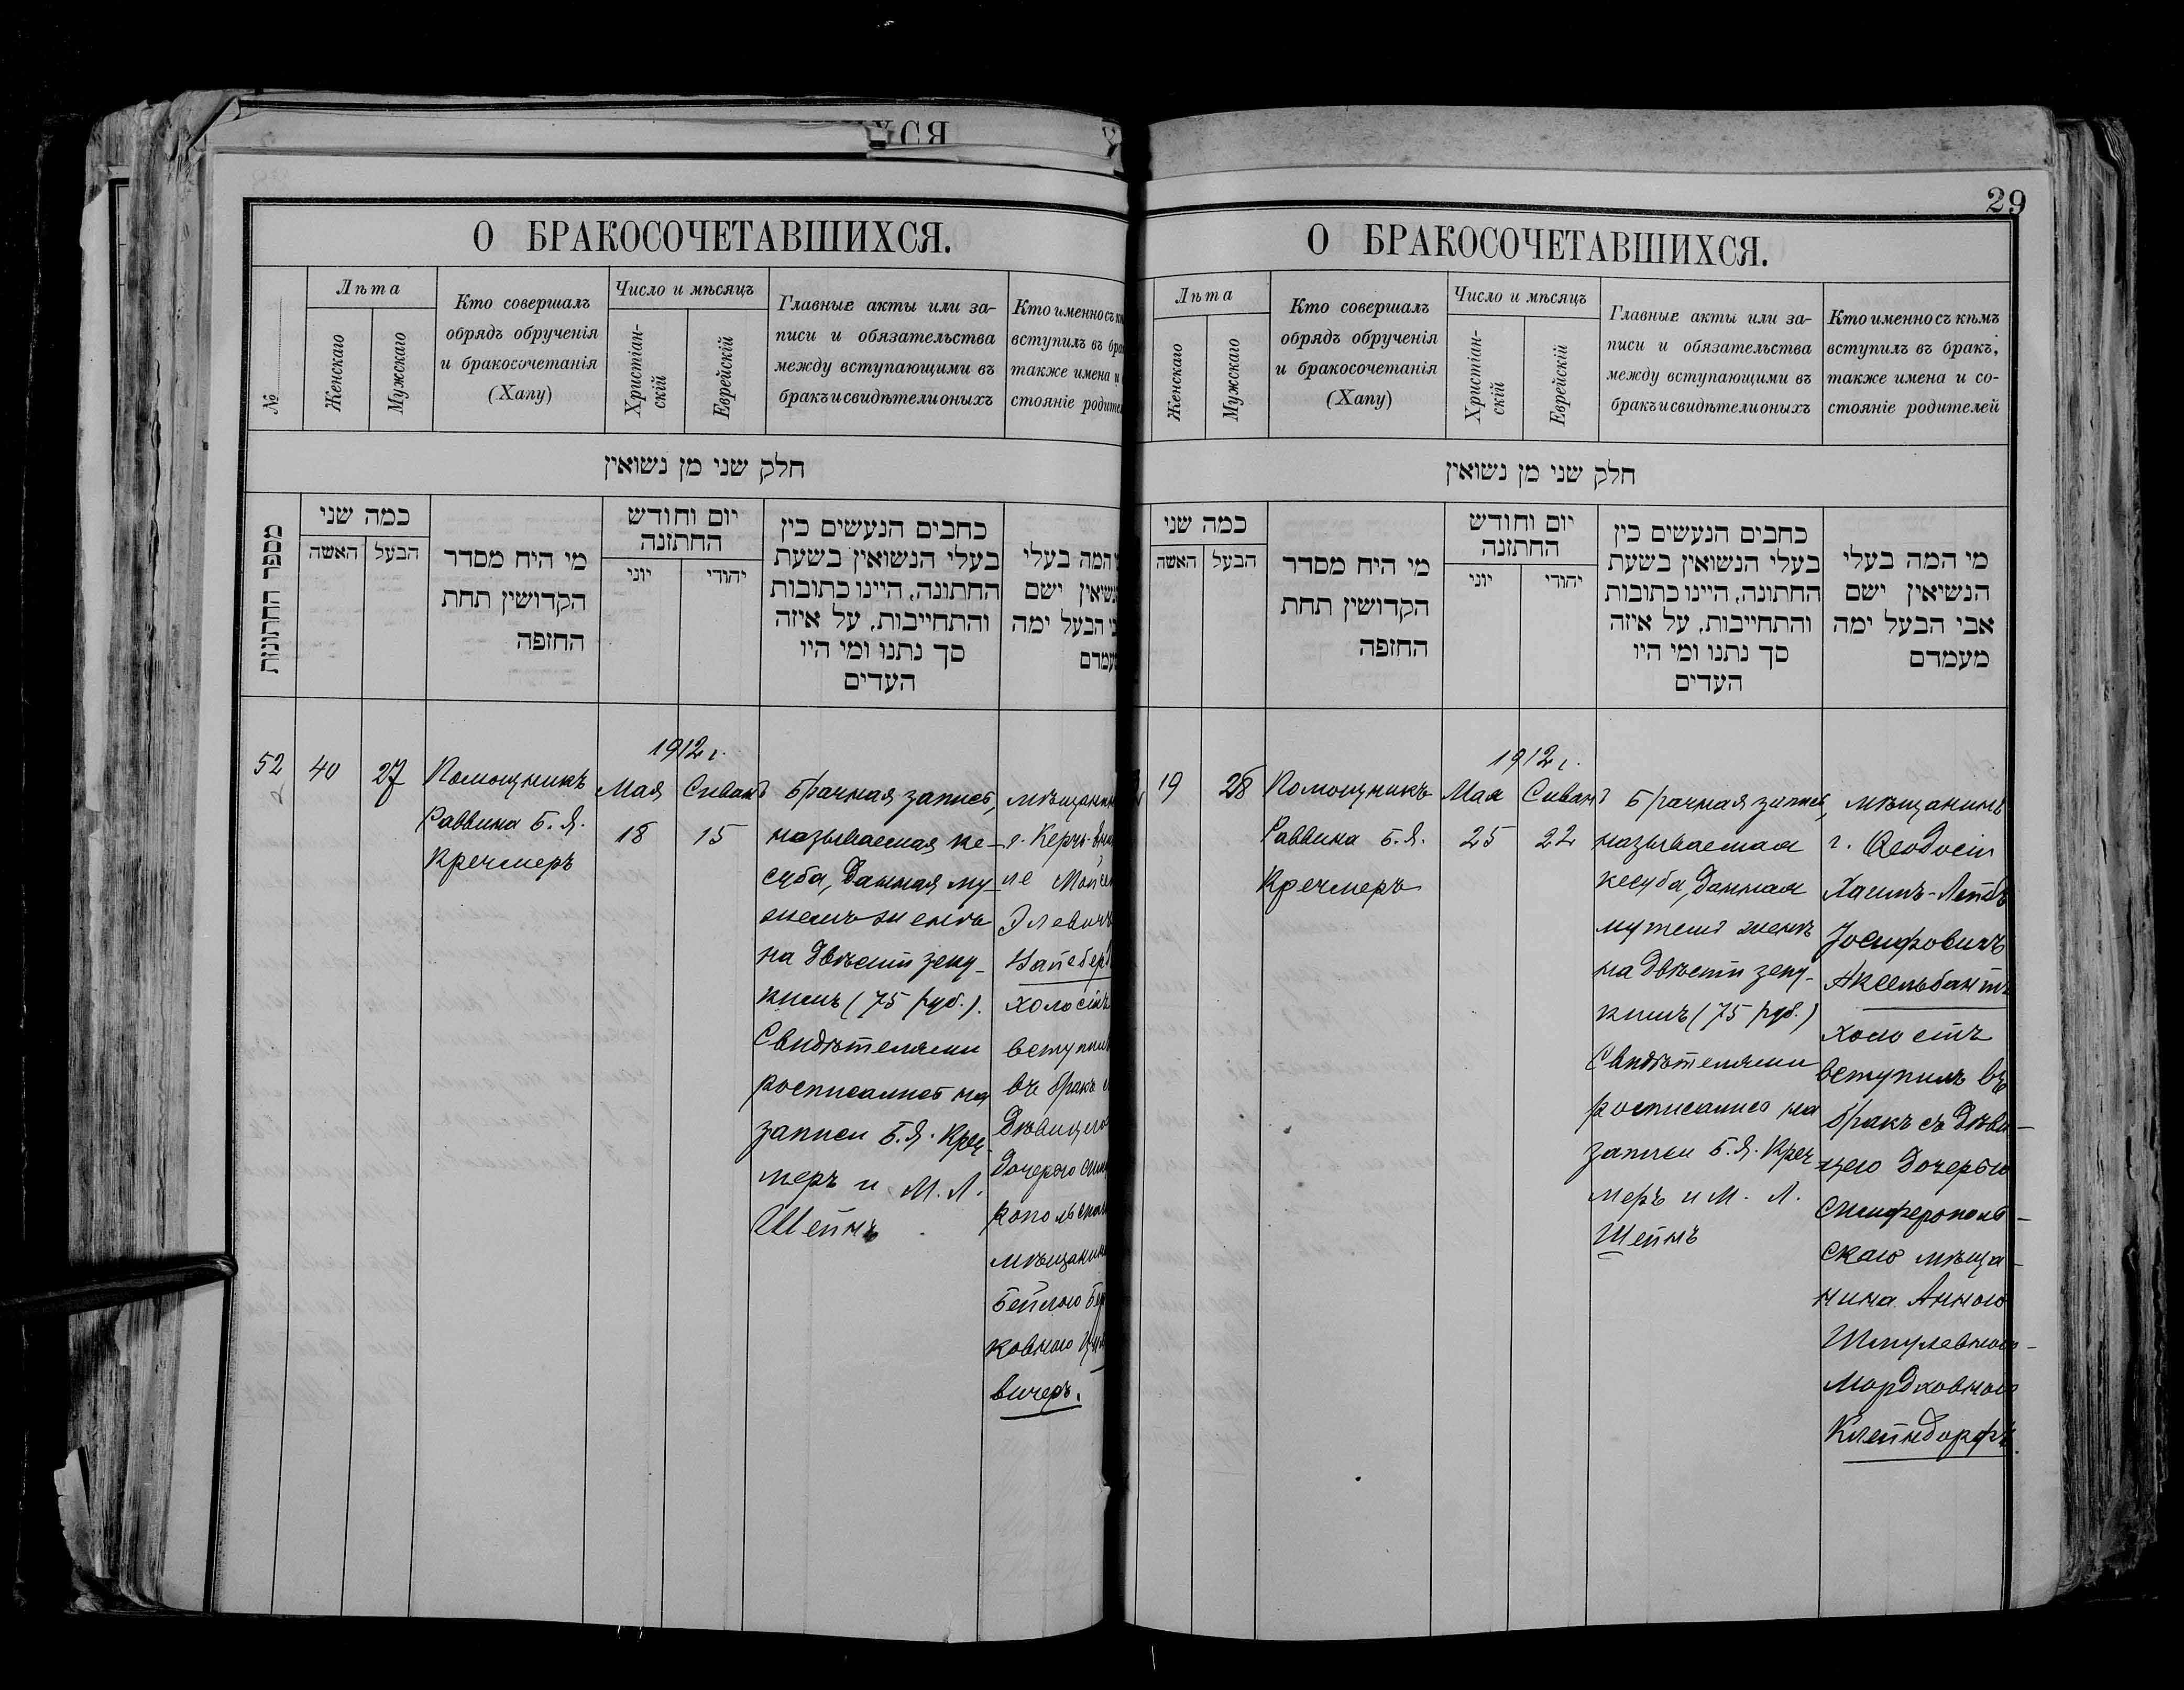 ХСЯ
О БРАКОСОЧЕТАВШИХСЯ.
№
Лѣта
Женскаго
Мужскаго
Кто совершалъ
обрядъ обрученія
и бракосочетанія
(Хапу)
Число и мѣсяцъ
Христіан-
скій
Еврейскій
Главные акты или за-
писи и обязательства
между вступающими въ
бракъ и свидѣтели оныхъ
Кто именно съ
вступилъ въ
также имена и
стояніе
חלק שני מן נשואין
מספר החתונות
כמה שני
האשה
הבעל
מי היח מסדר
הקדושין תחת
החופה
יום וחודש
החתונה
יוני
יהודי
כתבים הנעשים כין
בעלי הנשואין בשעת
החתונה, היינו כתובות
והתחייבות, על איזה
סך נתנו ומי היו
העדים
המה בעלי
ישם
הבעל ימה
52
40
27
Помощникъ
Раввина Б. Я.
Кречмеръ
1912 г.
Мая
18
Сиванъ
15
Брачная запись,
называемая ке-
суба, данная му-
жемъ женѣ
на двѣсти зеку-
кимъ (75 руб.).
Свидѣтелями
росписались на
записи Б. Я. Креч-
меръ и М. Л.
Шейнъ
г. Керчь-
Элевичъ
холостъ
въ бракъ
Бейлою
ковною
вичеръ.
29
О БРАКОСОЧЕТАВШИХСЯ.
Лѣта
Женскаго
Мужскаго
Кто совершалъ
обрядъ обрученія
и бракосочетанія
(Хапу)
Число и мѣсяцъ
Христіан-
скій
Еврейскій
Главные акты или за-
писи и обязательства
между вступающими въ
бракъ и свидѣтели оныхъ
Кто именно съ кѣмъ
вступилъ въ бракъ,
также имена и со-
стояніе родителей
חלק שני מן נשואין
כמה שני
האשה
הבעל
מי היח מסדר
הקדושין תחת
החופה
יום וחודש
החתונה
יוני
יהודי
כתבים הנעשים כין
בעלי הנשואין בשעת
החתונה, היינו כתובות
והתחייבות, על איזה
סך נתנו ומי היו
העדים
מי המה בעלי
הנשיאין ישם
אבי הבעל ימה
מעמדם
19
28
Помощникъ
Раввина Б. Я.
Кречмеръ
1912 г.
Мая
25
Сиванъ
22
Брачная запись,
называемая
кесуба, данная
мужемъ женѣ
на двѣсти зеку-
кимъ (75 руб.)
Свидѣтелями
росписались на
записи Б. Я. Креч
меръ и М. Л.
Шейнъ
мѣщанинъ
г. Ѳеодосіи
Хаимъ-Лейбъ
Іосифовичъ
Аксельбантъ
холостъ
вступилъ въ
бракъ съ дѣви-
цею дочерью
Симферополь-
скаго мѣща-
нина Анною
Шмулевною-
Мордковною
Клейндорфъ.